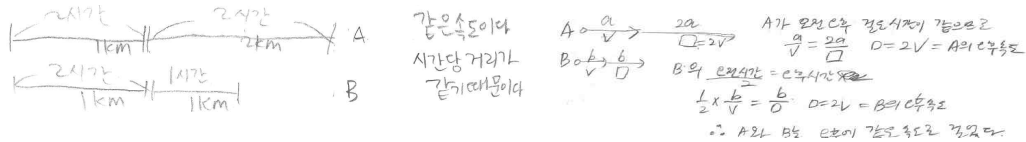 2시간 2시간
1km 2km A
2시간 1시간
1km 1km B
같은속도이다
시간당 거리가
같기때문이다
A a 2a
V □=2V
B b b
V □
A가 오전 오후 걸은시간이 같으므로
a/V = 2a/□ □=2V=A의 오후속도
B의 오전시간/2 = 오후시간
1/2 × b/V = b/□ □=2V = B의 오후속도
∴ A와 B는 오후에 같은 속도로 걸었다.